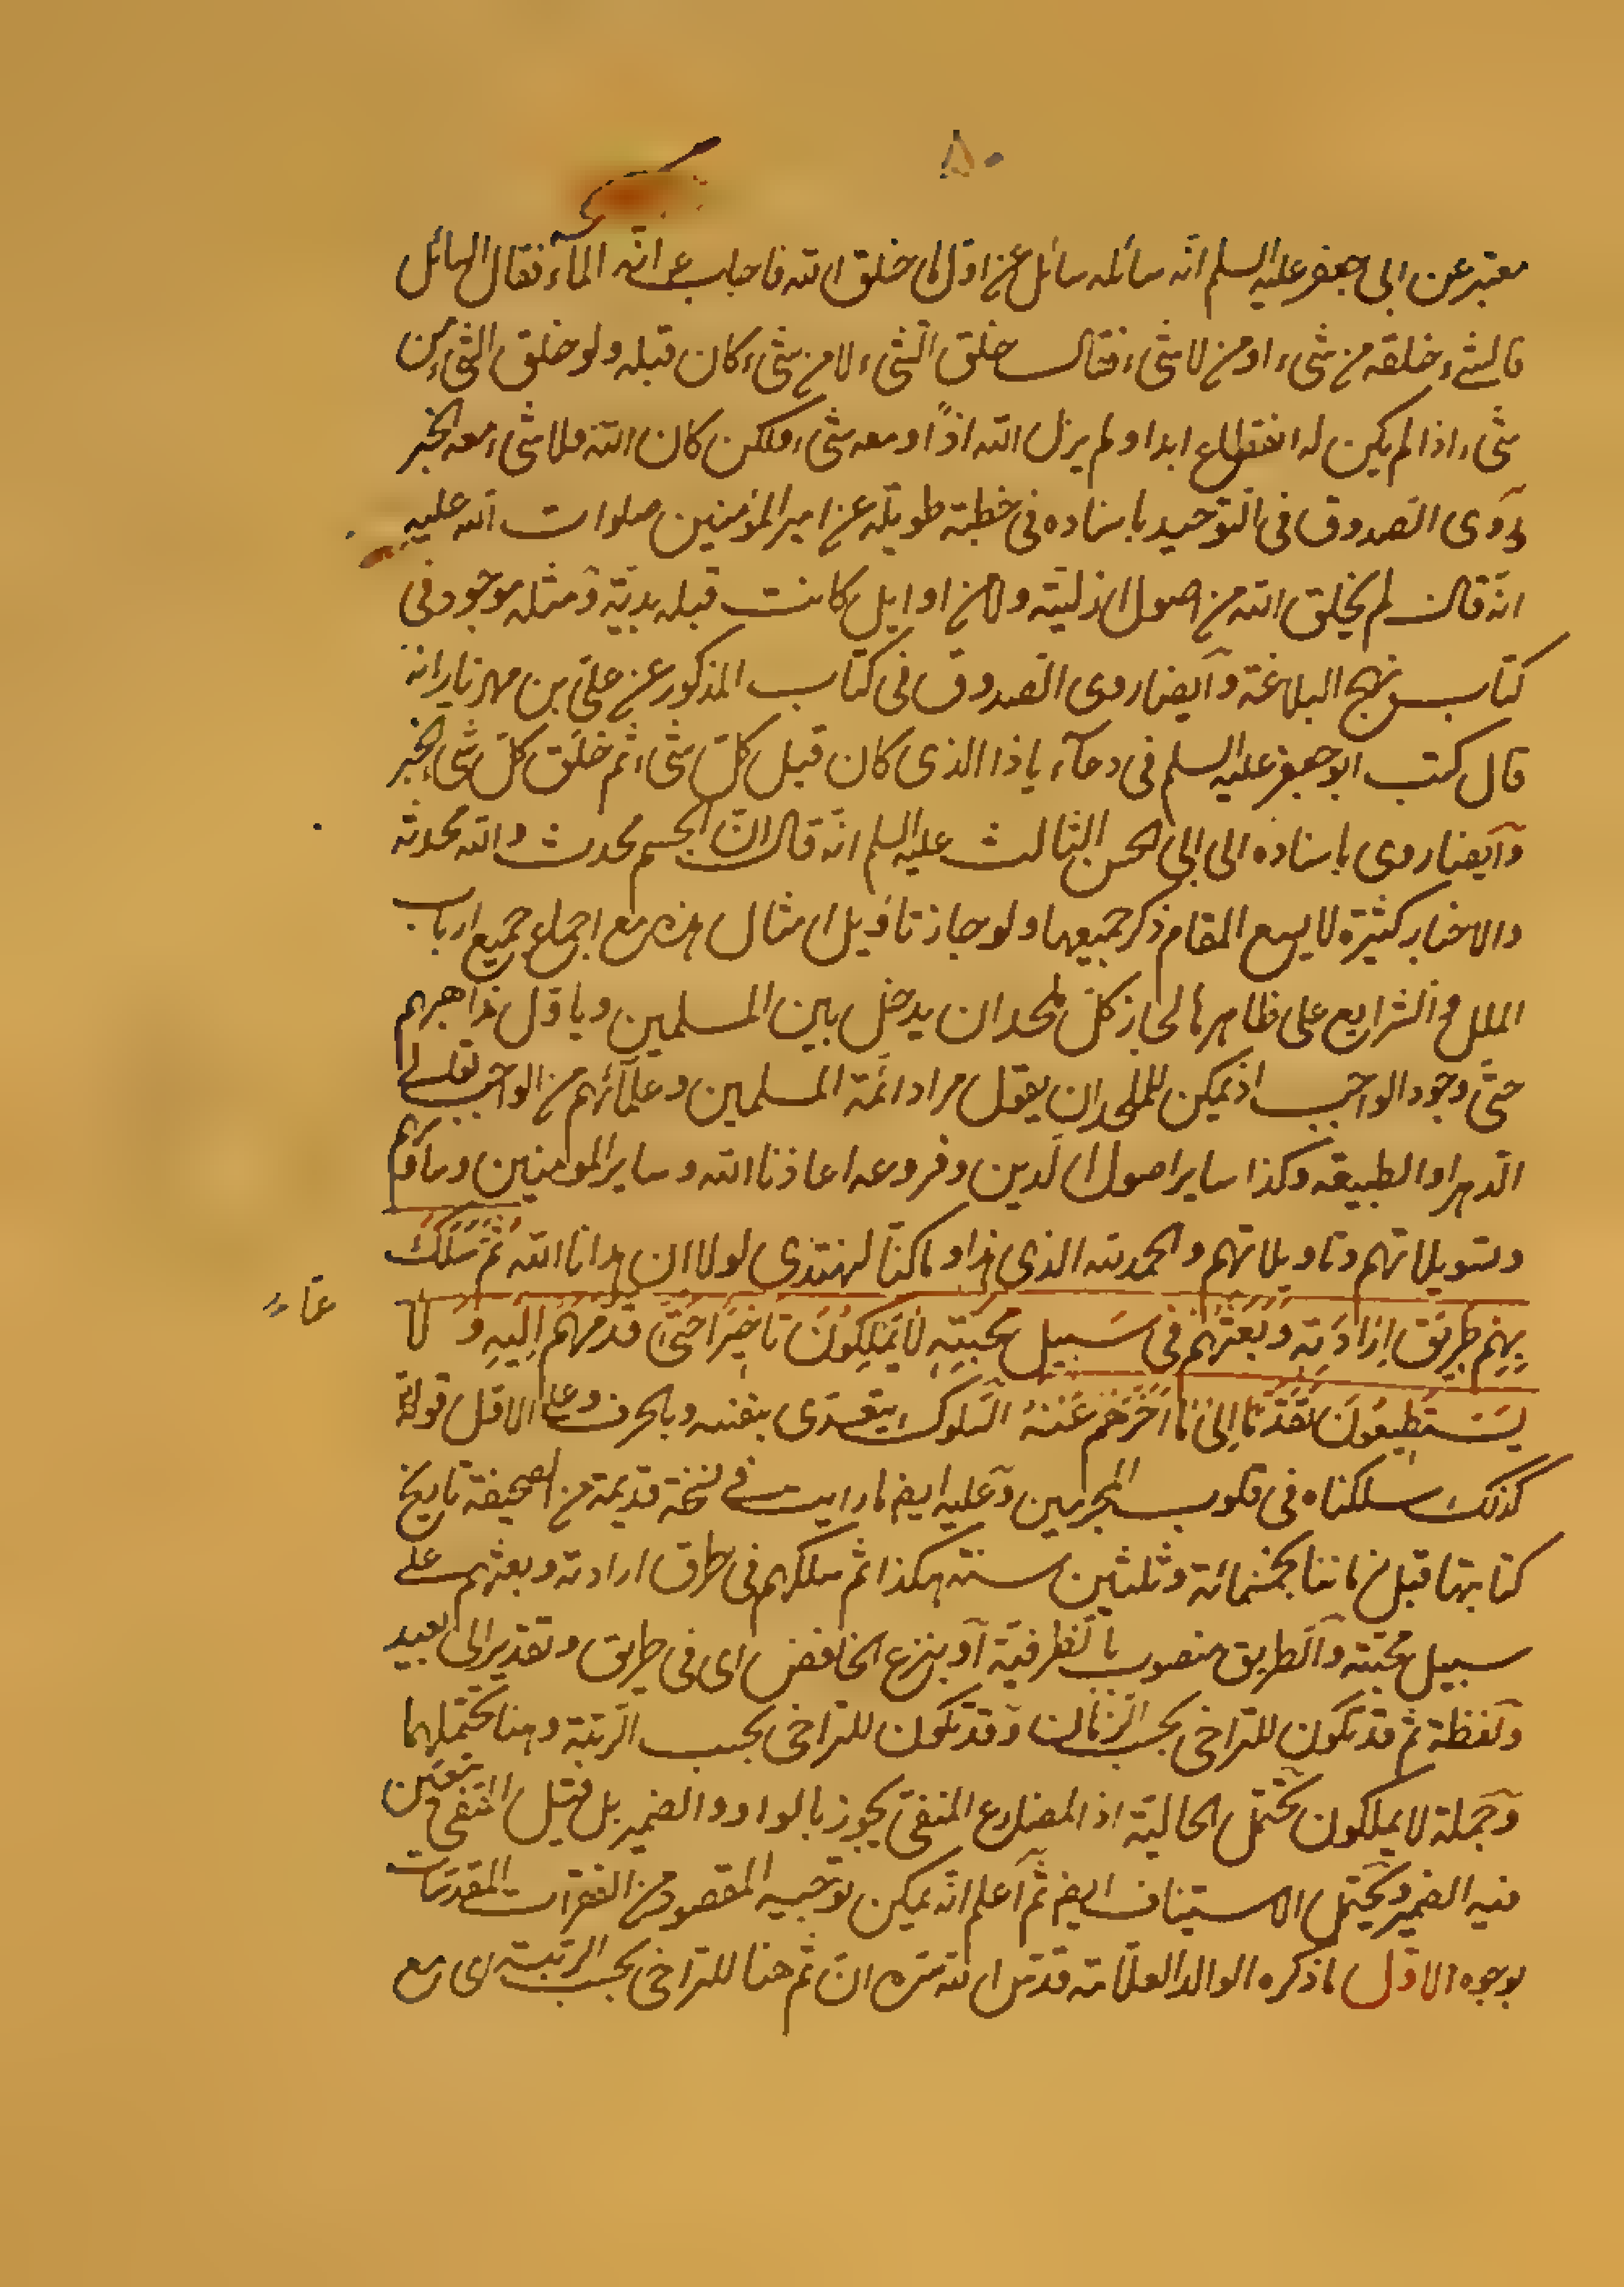 ٥٠
معتبر عن ابى جعفر عليه السلم انه سائله سائل عن اول ما خلق الله فاجاب عن انه الماء فقال السائل
فالشئ خلقه من شئ او من لا شئ فقال خلق الشئ لا من شئ كان قبله ولو خلق الشئ من
شئ اذا لم يكن له انقطاع ابدا ولم يزل الله اذًا ومعه شئ ولكن كان الله ولا شئ معه الخبر
وروى الصدوق فى التوحيد باسناده فى خطبة طويلة عن امير المؤمنين صلوات الله عليه
انه قال لم يخلق الله من اصول ازلية ولا من اوايل كانت قبله بدية ومثله موجود فى
كتاب نهج البلاغة وايضا روى الصدوق فى كتاب المذكور عن على بن مهزيار انه
قال كتب ابو جعفر عليه السلم فى دعاء يا ذا الذى كان قبل كل شئ ثم خلق كل شئ الخبر
وايضا روى باسناده الى ابى الحسن الثالث عليه السلم انه قال ان الجسم محدث والله محدثه
والاخبار كثيرة لا يسع المقام ذكر جميعها ولو جاز تاويل امثال هذه مع اجماع جميع ارباب
الملل والشرايع على ظاهرها لجاز كل ملحد ان يدخل بين المسلمين وياول مذاهبهم
حتى وجود الواجب اذ يمكن للملحد ان يقول مراد ائمة المسلمين وعلمائهم من الواجب تعالى
الدهر او الطبيعة وكذا ساير اصول الدين وفروعه اعاذنا الله وساير المومنين وساوسهم
وتسويلاتهم وتاويلاتهم والحمد لله الذى هدانا وما كنا لنهتدى لولا ان هدانا الله ثُمَّ سَلَكَ
بِهِم طَرِيقَ اِرَادَتِهِ وَبَعَثَهُم فى سَبِيل مَحَبَّتِهِ لا يَملِكُونَ تَاخِيرًا حَتّى قدمهُم اِلَيهِ وَ لَا
يَستَطيعُونَ تَقَدُّمًا اِلى مَا اَخَّرَهُم عَنهُ السلوك يتعدى بنفسه وبالحرف وعلى الاول قوله تع
كذلك سلكناه فى قلوب المجرمين وعليه ايضا ما رايت فى نسخة قديمة من الصحيفة تاريخ
كتابتها قبل زماننا بخمسمائة وثلثين سنة هكذا ثم سلكهم فى طرق ارادته وبعثهم على
سبيل محبته والطريق منصوب بالظرفية او بنزع الخافض اى فى طريق وتقدير الى بعيد
ولفظة ثم قد تكون للتراخى بحسب الزمان وقد تكون للتراخى بحسب الرتبة وهنا يحتملهما
وجملة لا يملكون يحتمل الحالية اذ المضارع المنفى يجوز بالواو والضمير بل قيل المنفى يتعين
فيه الضمير ويحتمل الاستيناف ايضا ثم اعلم انه يمكن توجيه المقصود من الفقرات المقدسات
بوجوه الاول ما ذكره الوالد العلامة قدس الله سره ان ثم هنا للتراخى بحسب الرتبة اى مع